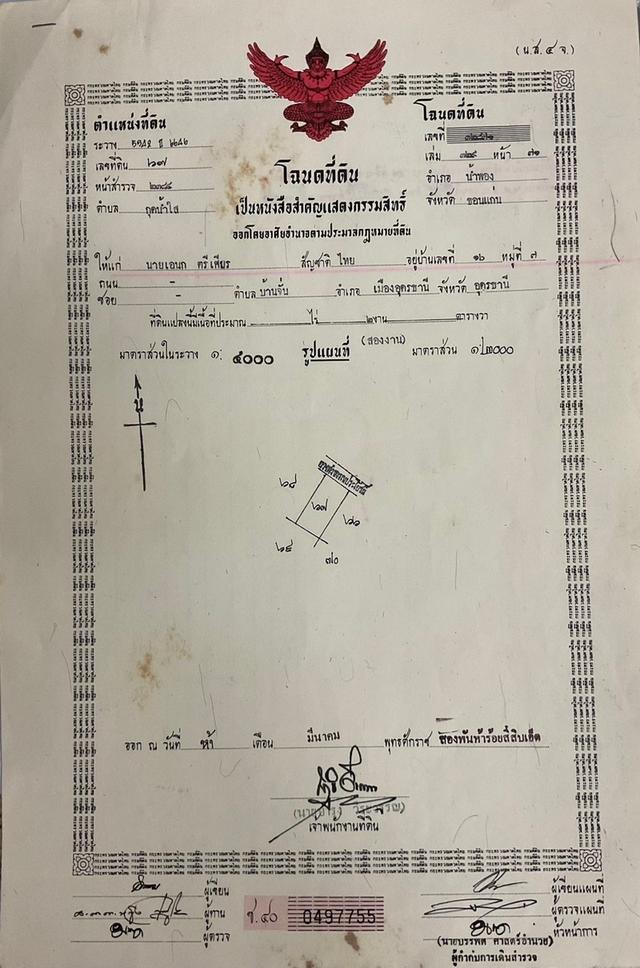 (น.ส. ๔ จ.)
ตำแหน่งที่ดิน
ระวาง
เลขที่ดิน ๖๗
หน้าสำรวจ
ตำบล กุดน้ำใส
โฉนดที่ดิน
เลขที่
เล่ม หน้า ๗๑
อำเภอ น้ำพอง
จังหวัด ขอนแก่น
โฉนดที่ดิน
เป็นหนังสือสำคัญแสดงกรรมสิทธิ์
ออกโดยอาศัยอำนาจตามประมวลกฎหมายที่ดิน
ให้แก่ นายเอนก ตรีเพียร สัญชาติ ไทย อยู่บ้านเลขที่ ๑๖ หมู่ที่ ๗
ถนน -
ซอย - ตำบล บ้านจั่น อำเภอ เมืองอุดรธานี จังหวัด อุดรธานี
ที่ดินแปลงนี้มีเนื้อที่ประมาณ ไร่ ๒ งาน ตารางวา
(สองงาน)
มาตราส่วนในระวาง ๑: ๔๐๐๐ รูปแผนที่ มาตราส่วน ๑:๒๐๐๐
น
๖๗
๗๐
ออก ณ วันที่ ห้า เดือน มีนาคม พุทธศักราช สองพันห้าร้อยสี่สิบเอ็ด
เจ้าพนักงานที่ดิน
ผู้เขียน
ผู้ทาน
ผู้ตรวจ
ช.๔๐ 0497755
ผู้เขียนแผนที่
ผู้ตรวจแผนที่
หัวหน้าการ
(นายบรรพต ศาสตร์อำนวย)
ผู้กำกับการเดินสำรวจ